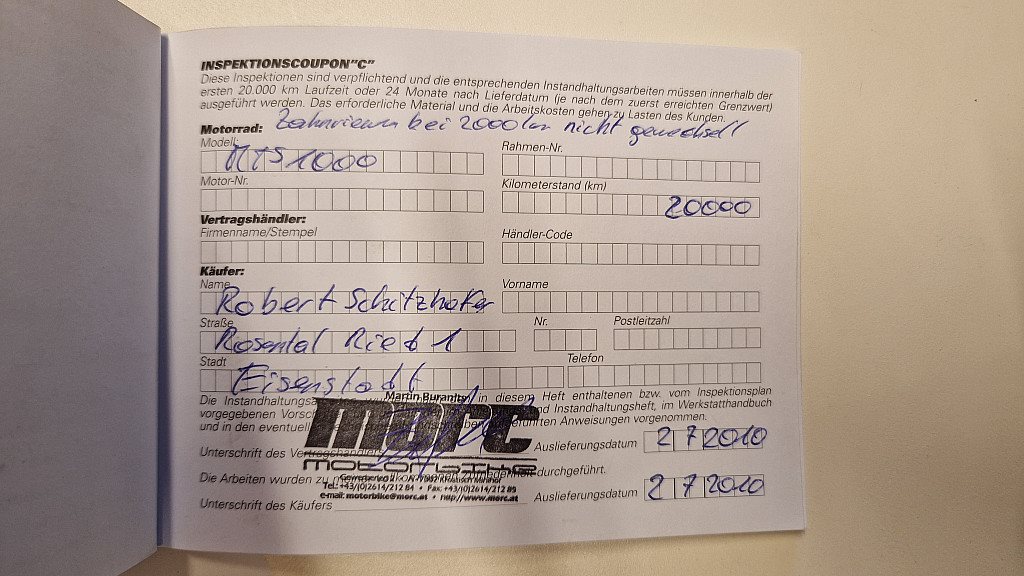 INSPEKTIONSCOUPON"C"
Diese Inspektionen sind verpflichtend und die entsprechenden Instandhaltungsarbeiten müssen innerhalb der
ersten 20.000 km Laufzeit oder 24 Monate nach Lieferdatum (je nach dem zuerst erreichten Grenzwert)
ausgeführt werden. Das erforderliche Material und die Arbeitskosten gehen zu Lasten des Kunden.
Motorrad: Zahnriemen bei 20000km nicht gewechselt
Modell Rahmen-Nr.
MTS1000
Motor-Nr. Kilometerstand (km)
20000
Vertragshändler:
Firmenname/Stempel Händler-Code
Käufer:
Name Vorname
Robert Schitzhofer
Straße Nr. Postleitzahl
Rosental Ried 1
Stadt Telefon
Eisenstadt
Die Instandhaltungsa in diesem Heft enthaltenen bzw. vom Inspektionsplan
Martin Buranits
vorgegebenen Vorsc nd Instandhaltungsheft, im Werkstatthandbuch
und in den eventuell führten Anweisungen vorgenommen.
morc
motorbike
Unterschrift des Vertragshändlers Auslieferungsdatum 2 7 2010
Die Arbeiten wurden zu meiner durchgeführt.
Tel.: +43/(0)2614/212 84 • Fax: +43/(0)2614/212 85
e-mail: motorbike@morc.at • http://www.morc.at
Unterschrift des Käufers Auslieferungsdatum 2 7 2010